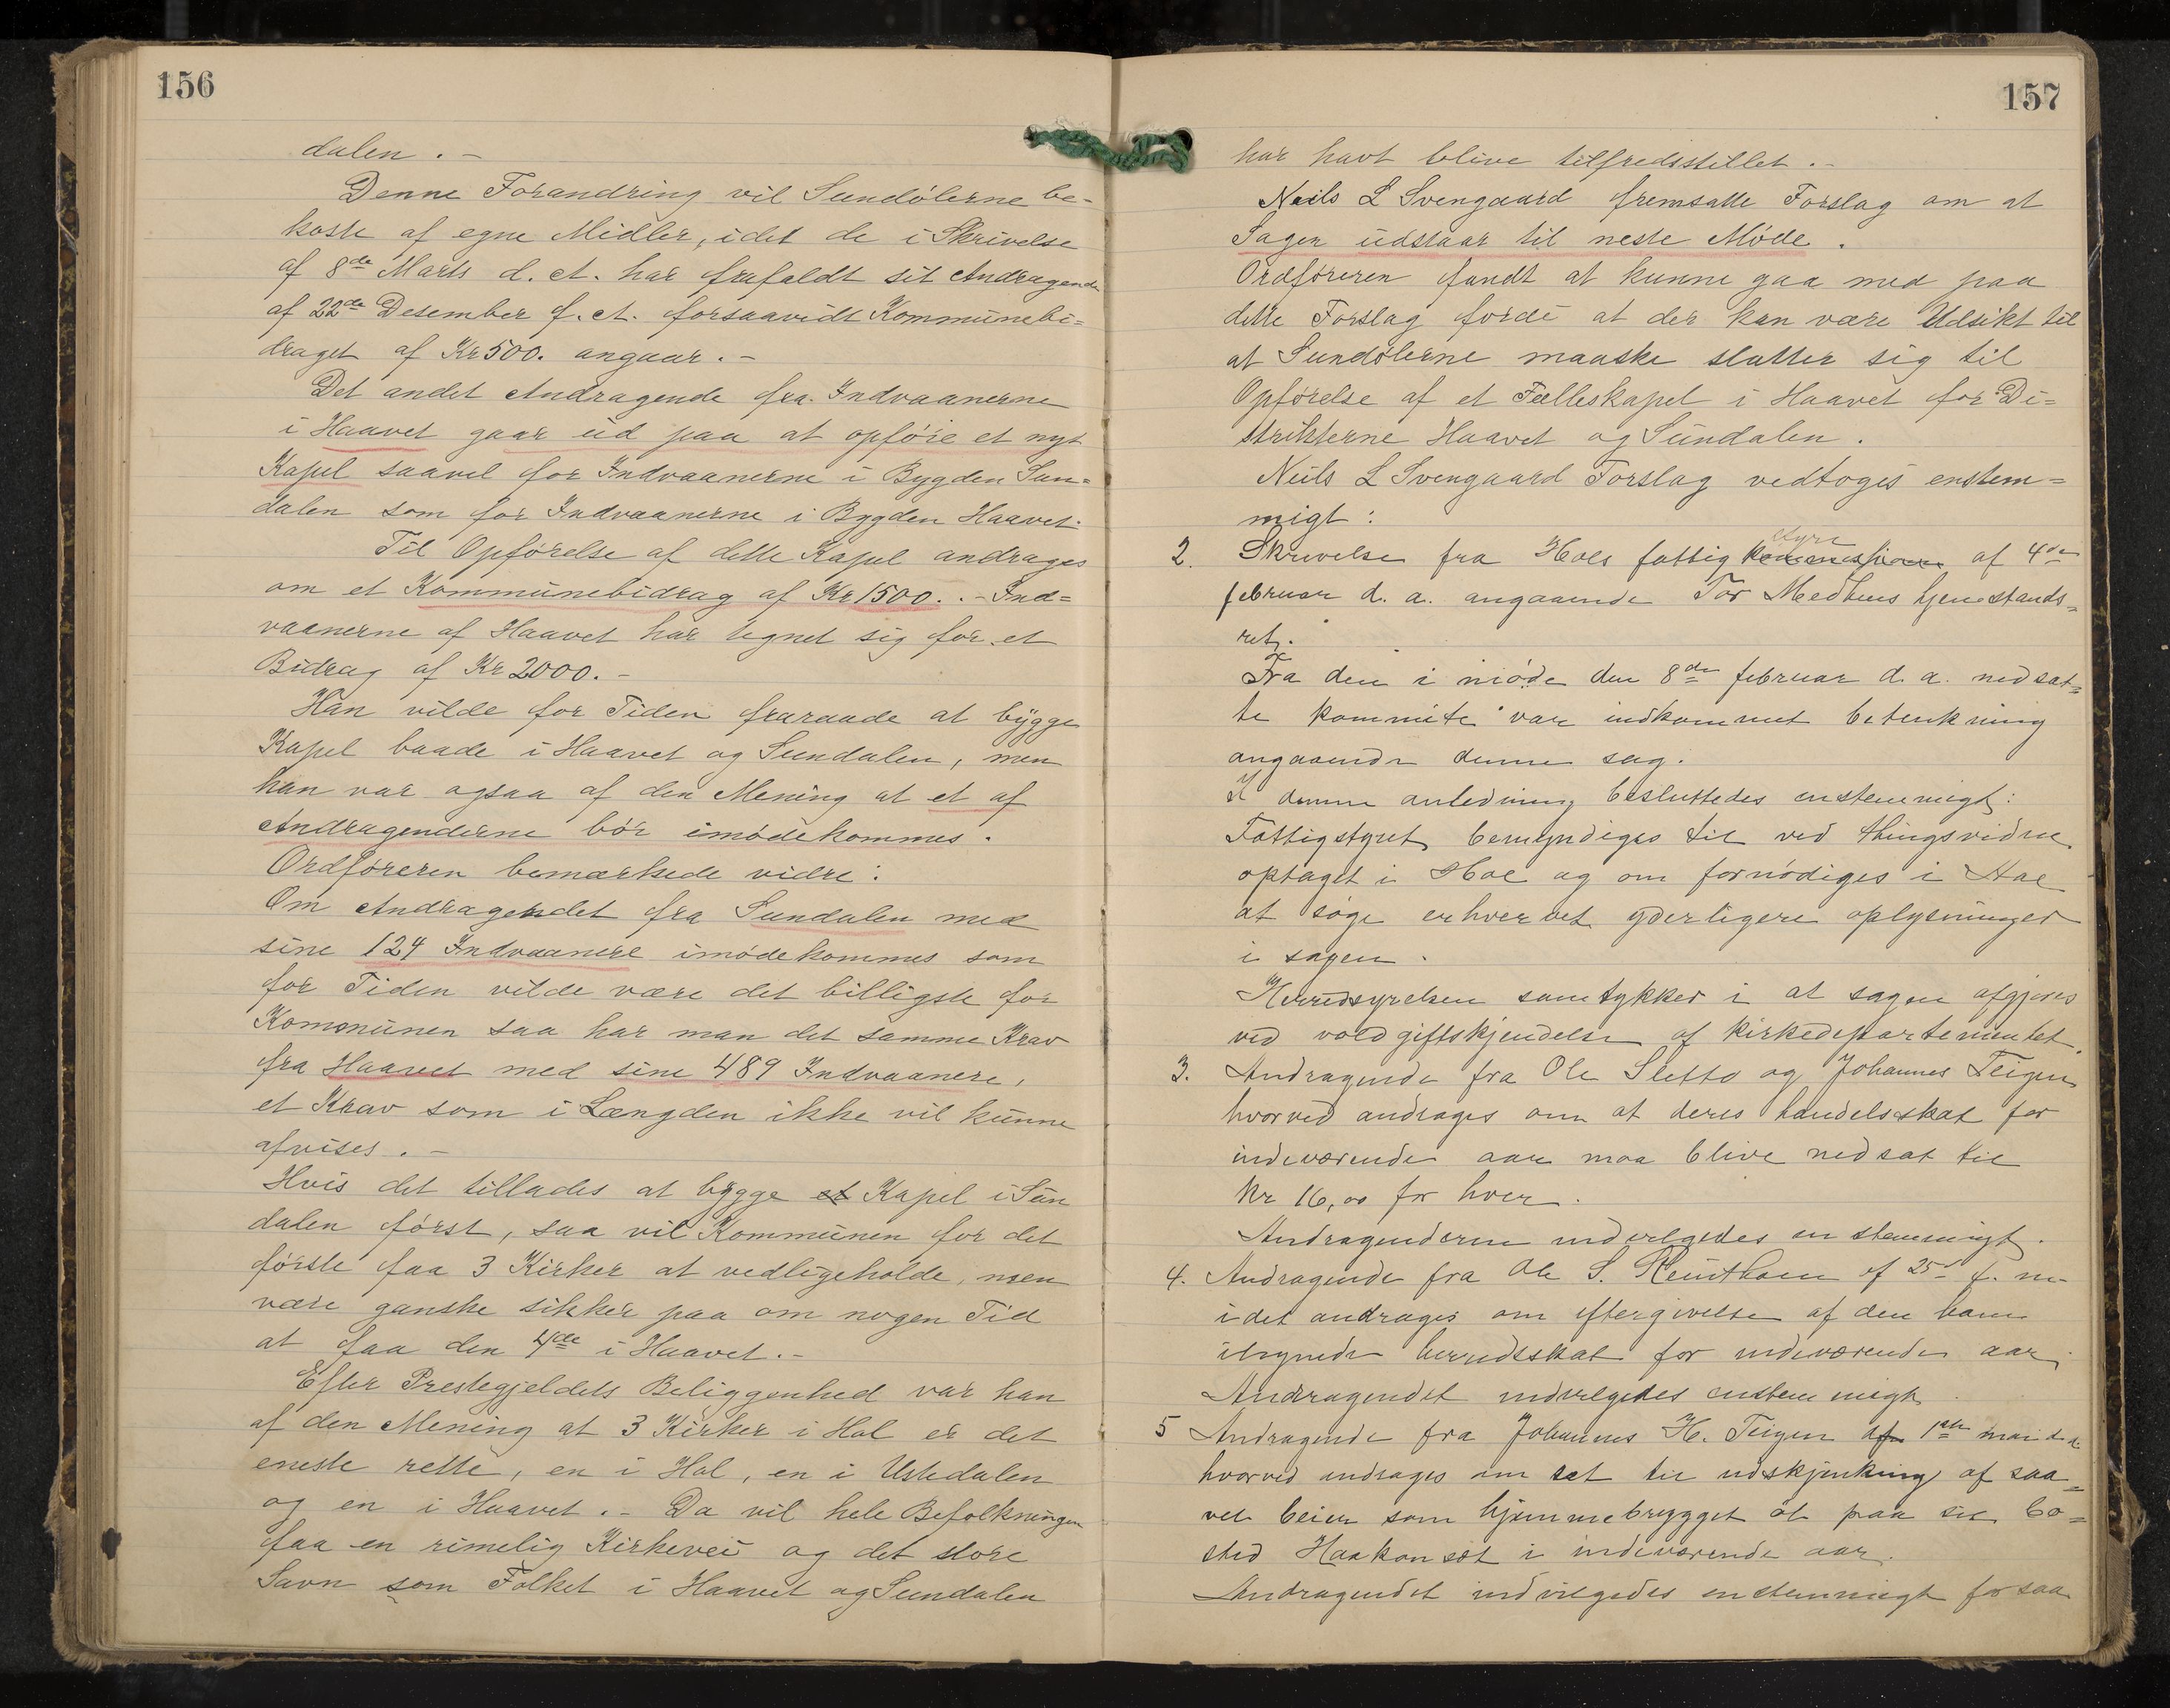 156
dalen . -
Denne Forandring vil Sundölerne be-
koste af egne Midler, idet de i Skrivelse
af 8de Marts d. A. har frafaldt sit Andragende
af 22de Desember f. A. forsaavidt Kommunebi=
draget af Kr 500. angaar. -
Det andet Andragende fra Indvaanerne
i Haavet gaar ud paa at opföre et nyt
Kapel saavel for Indvaanerne i Bygden Sun=
dalen som for Indvaanerne i Bygden Haavet.
Til Opförelse af dette Kapel andrages
om et Kommunebidrag af Kr 1500. . - Ind=
vaanerne af Haavet har tegnet sig for et
Bidrag af Kr 2000. -
Han vilde for Tiden fraraade at bygge
Kapel baade i Haavet og Sundalen, men
han var ogsaa af den Mening at et af
Andragenderne bör imödekommes.
Ordföreren bemærkede vidre:
Om Andragendet fra Sundalen med
sine 124 Indvaanere imödekommes som
for Tiden vilde være det billigste for
Kommunen saa har man det samme Krav
fra Haavet med sine 489 Indvaanere,
et Krav som i Længden ikke vil kunne
afvises . -
Hvis det tillades at bygge et Kapel i Sun
dalen först, saa vil Kommunen for det
förste faa 3 Kirker at vedligeholde, men
være ganske sikker paa om nogen Tid
at faa den 4de i Haavet. -
Efter Prestegjeldets Beliggenhed var han
af den Mening at 3 Kirker i Hol er det
eneste rette, en i Hol, en i Ustedalen
og en i Haavet. - Da vil hele Befolkningen
faa en rimelig Kirkevei og det store
Savn som Folket i Haavet og Sundalen
157
har havt blive tilfredsstillet. -
Neils L Svengaard fremsatte Forslag om at
Sagen udstaar til neste Möde .
Ordföreren fandt at kunne gaa med paa
dette Forslag fordi at der kan være Udsikt til
at Sundölerne maaske slutter sig til
Opförelse af et Fælleskapel i Haavet for Di=
strikterne Haavet og Sundalen .
Neils L Svengaard Forslag vedtoges enstem=
migt :
styre
2. Skrivelse fra Hols fattig kommission af 4de
februar d. a. angaaende Tor Medhus hjemstands=
ret.
Fra den i möde den 8de februar d. a. nedsat=
te kommite var indkommet betenkning
angaaende denne sag.
I denne anledning besluttedes enstemmigt:
Fattigstyret bemyndiges til ved thingsvidne
optaget i Hol og om fornödiges i Aal
at söge erhvervet yderligere oplysninger
i sagen .
Herredsyrelsen samtykker i at sagen afgjöres
ved voldgiftskjendelse af kirkedepartementet.
3. Andragende fra Ole Sletto og Johannes Teigen
hvorved andrages om at deres handelsskat for
indeværende aar maa blive nedsat til
Kr 16,00 for hver .
Andragenderne indvilgedes enstemmigt.
4. Andragende fra Ole S. af 25de f. m.
idet andrages om eftergivelse af den ham
ilignede herredsskat for indeværende aar.
Andragendet indvilgedes enstemmigt.
5 Andragende fra Johannes H. Teigen af 1ste mai d. a.
hvorved andrages om ret til udskjenkning af saa=
vel beier som hjemmebrygget öl paa sit bo=
sted Haakonsæt i indeværende aar.
Andragendet indvilgedes enstemmigt forsaa